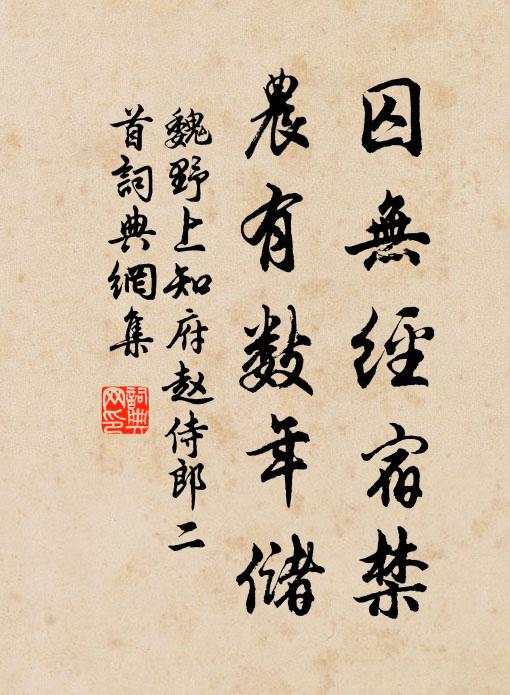 囚無經宿禁
農有數年儲
魏野上知府赵侍郎二
首詞典網集
詞典
网印